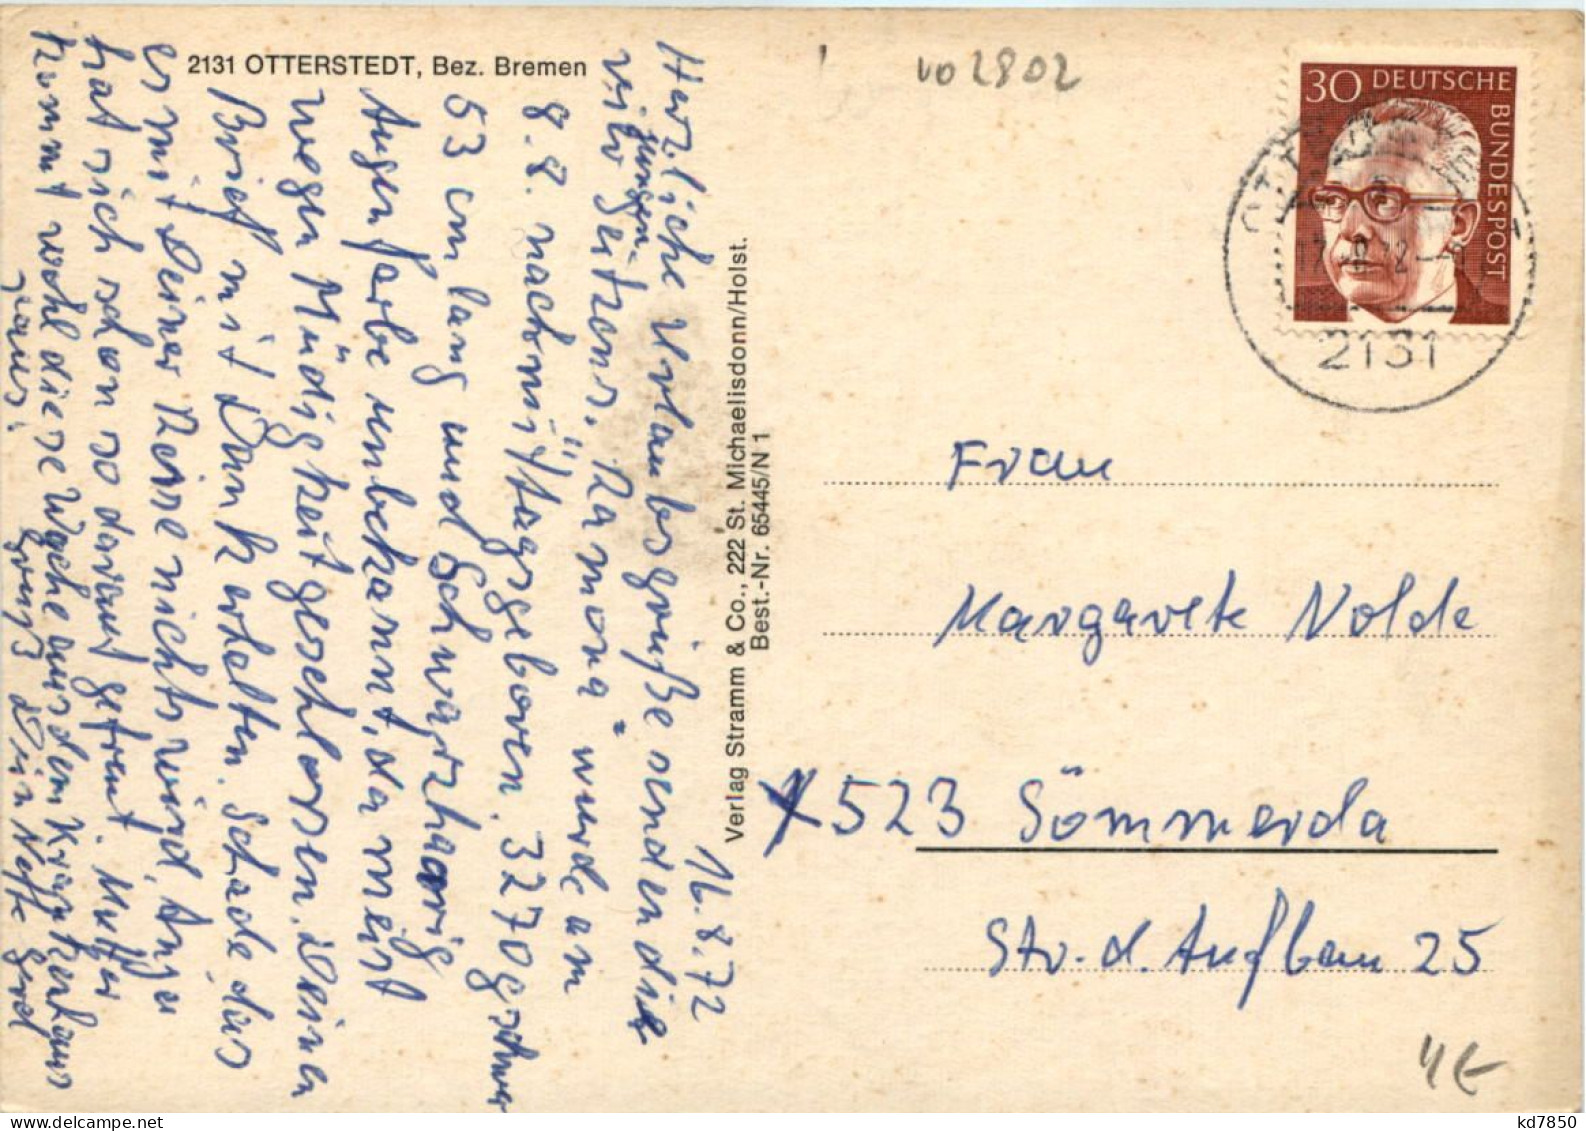 2131 OTTERSTEDT, Bez. Bremen
16.8.72
Herzliche Urlaubsgrüße senden die
vier
jungen
Geitzous. "Ramona" wurde am
8.8. nachmittags geboren. 3270g schwer
53 cm lang und schwarzhaarig
Augenfarbe unbekannt, da meist
wegen Müdigkeit geschlossen. Deinen
Brief mit Dank erhalten. Schade, das
es mit Deiner Reise nichts wird. Anja
hat sich schon so darauf gefreut. Mutter
kommt wohl diese Woche aus dem Krankenhaus
raus. Gruß Dein Neffe Gerd
Verlag Stramm & Co., 222 St. Michaelisdonn/Holst.
Best.-Nr. 65445/N 1
vo 2802
30 DEUTSCHE
BUNDESPOST
2131
Frau
Margarete Nolde
X 523 Sömmerda
Str. d. Aufbau 25
4€
kd7850